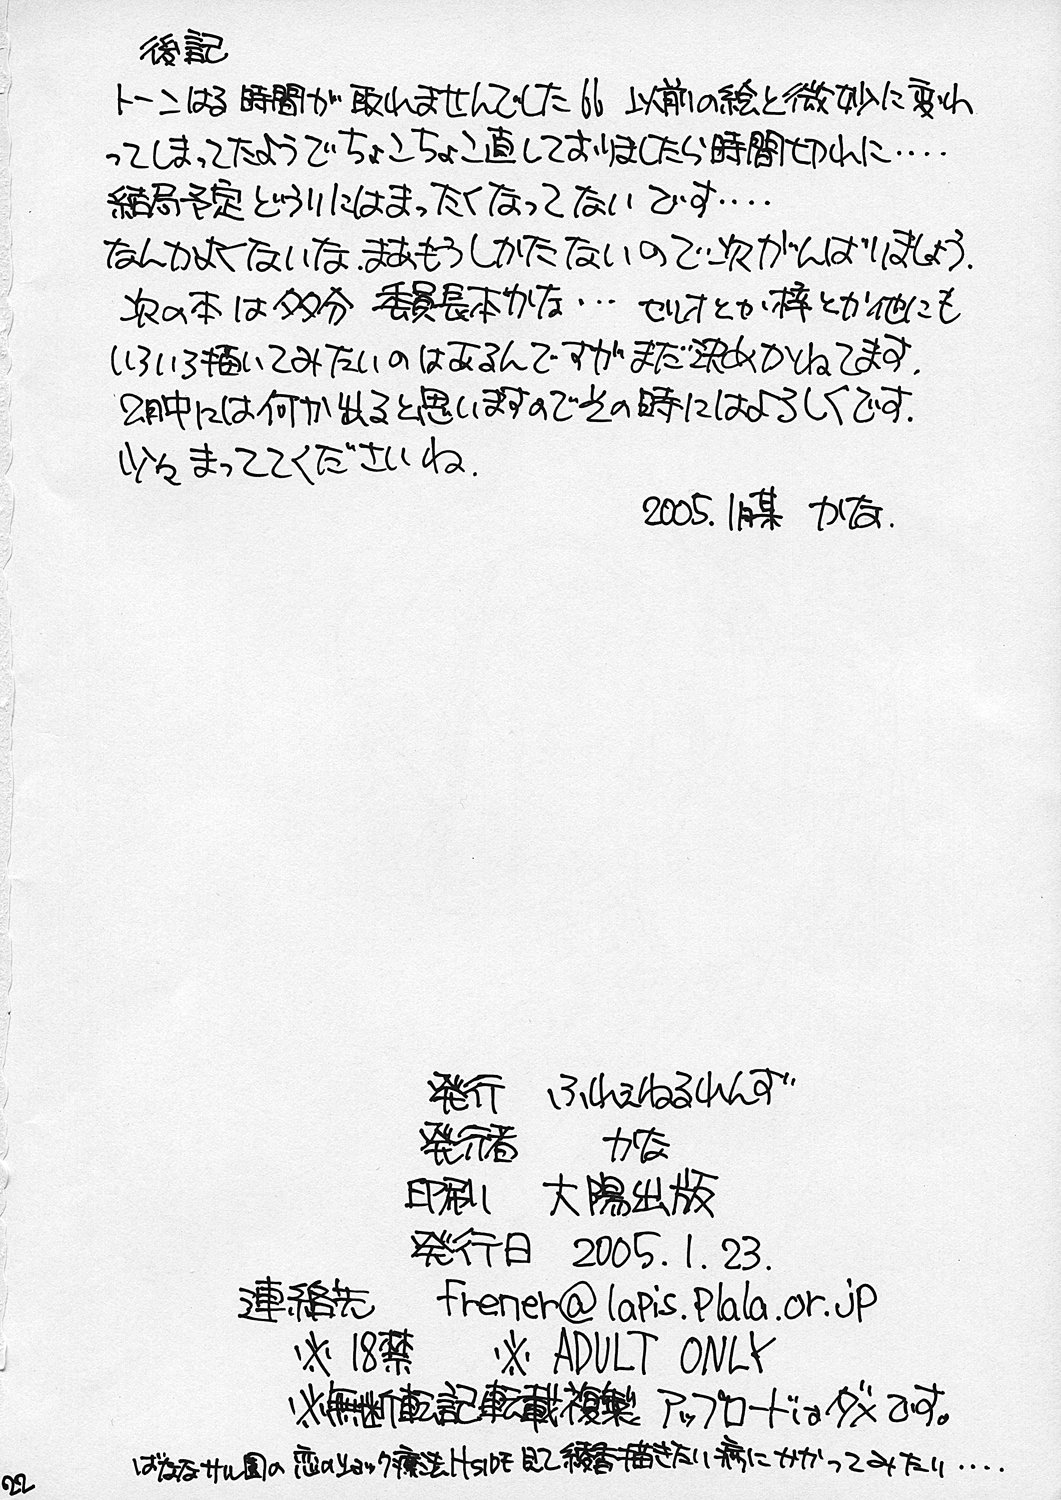 後記
トーンはる時間が取れませんでした66 以前の絵と微妙に変わ
ってしまってたようでちょこちょこ直しておりましたら時間切れに‥‥
結局予定どうりにはまったくなってないです‥‥
なんかよくないな.まあもうしかたないので次がんばりましょう.
次の本は多分 委員長本かな… セリオとか梓とか他にも
いろいろ描いてみたいのはあるんですがまだ決めかねてます.
2月中には何か出ると思いますのでその時にはよろしくです.
少々まっててくださいね.
2005.1月某 かな.
発行 ふれぇねるれんず
発行者 かな
印刷 大陽出版
発行日 2005.1.23.
連絡先 frener@lapis.plala.or.jp
※18禁 ※ADULT ONLY
※無断転記転載複製 アップロードはダメです。
ばななサル園の恋のショック療法HSIDE見て綾香描きたい病にかかってみたり‥‥
22